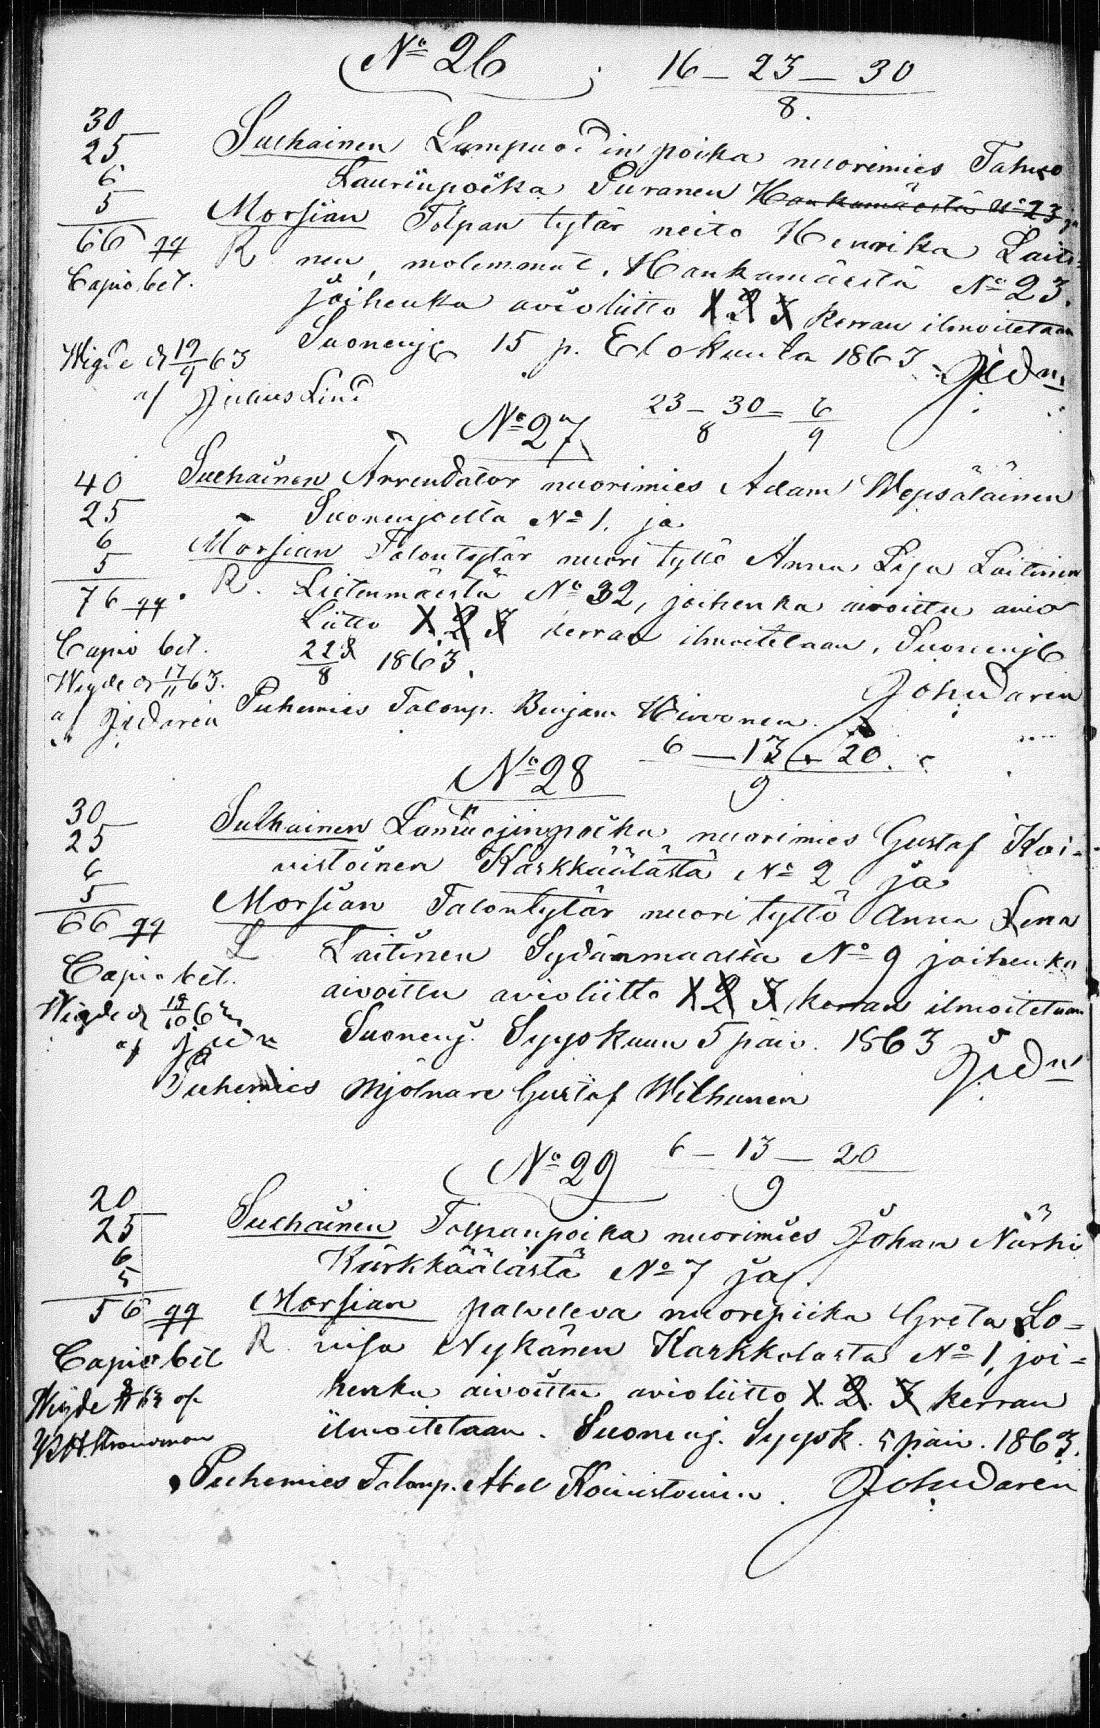 No 26 16 – 23 – 30
8.
30
25
6
5
66
Capio bet.
Sulhainen Lampuodin poika nuorimies Tahwo
Laurinpoika Puranen Hankamäestä No 23 ja
Morsian Tolpan tytär neito Henrika Laiti-
R nen, molemmat, Hankamäestä No 23.
joihenka avioliitto 1 2 3 kerran ilmoitetaan
Suonenj 15 p. Elokuuta 1863
Wigde d 19/9 63
af Julius Lind
No 27 23 – 30 – 6
8 9
40
25
6
5
76
Capio bet.
Wigde d 17/11 63.
af
Sulhainen Arrendator nuorimies Adam Wepsäläinen
Suonenjoelta No 1. ja
Morsian Talontytär nuori tyttö Anna Lisa Laitinen
R. Lietenmäestä No 32, joihenka aivoittu avio
liitto 1. 2 3 kerran ilmoitetaan, Suonenj
22 8 1863.
Puhemies Talonp. Benjam Hirvonen.
No 28 6 – 13 – 20.
9
30
25
6
5
66
Capio bet.
Wigde d 18/10 63
af
Sulhainen poika nuorimies Gustaf Koi-
vistoinen Kärkkäälästä No 2 ja
Morsian Talontytär nuori tyttö Anna Lena
L Laitinen Sydänmaasta No 9 joihenka
aivoittu avioliitto 1 2 3 kerran ilmoitetaan
Suonenj. Syyskuun 5 päiv. 1863
Puhemies Mjölnare Gustaf Wilhunen
No 29 6 – 13 – 20
9
20
25
6
5
56
Capio bet
Wigde 63 af
Sulhainen Tolpanpoika nuorimies Johan Närhi
Kärkkäälästä No 7 ja
Morsian palveleva nuoripiika Greta Lo=
R. visa Nykänen Karkkalasta No 1, joi=
henka aivoittu avioliitto 1. 2. 3 kerran
ilmoitetaan. Suonenj. Syysk. 5 päiv. 1863.
Puhemies Talonp. Abel Koivistoinen.